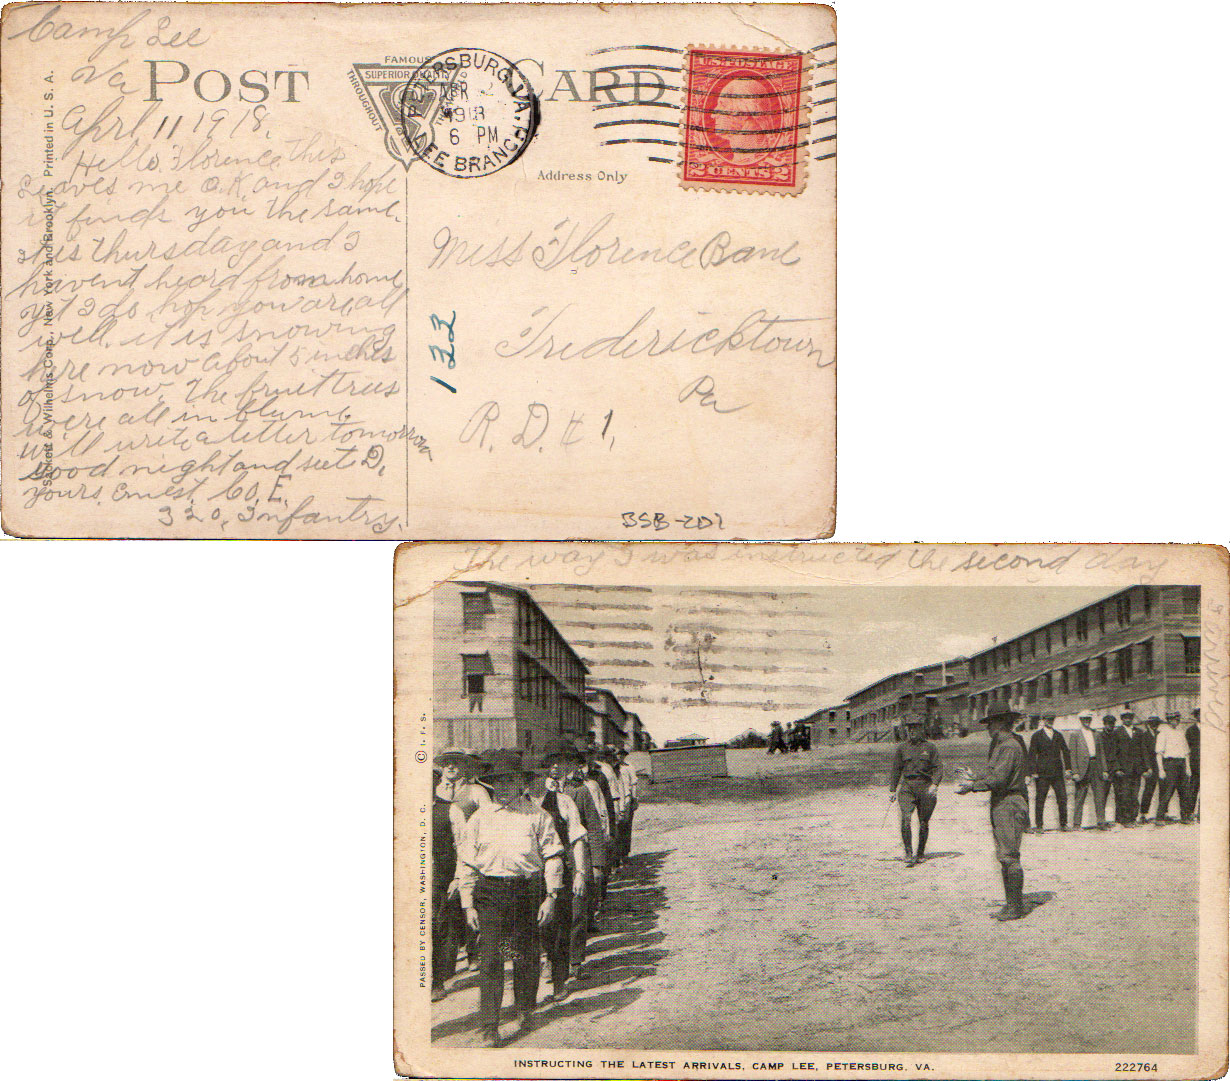 Camp Lee
Va
April 11 1918,
Hello Florence this
leaves me O.K. and I hope
it finds you the same.
this thursday and I
havent heard from home
yt I do hop you are all
well. it is snowing
here now about 5 inches
of snow. The fruit trees
were all in blume
will write a letter tomorrow
good night and
yours Ernest Co, E.
320, Infantry.
POST CARD
FAMOUS
SUPERIOR QUALITY
THROUGHOUT
PETERSBURG, VA.
APR
1918
6 PM
LEE BRANCH
U.S. POSTAGE
2 CENTS 2
Address Only
Miss Florence Bane
Fredericktown
Pa
R. D. # 1,
122
BSB-202
Sackett & Wilhelms Corp., New York and Brooklyn. Printed in U. S. A.
The way I was instructed the second day
PASSED BY CENSOR, WASHINGTON, D. C. © I. F. S.
INSTRUCTING THE LATEST ARRIVALS, CAMP LEE, PETERSBURG, VA.
222764